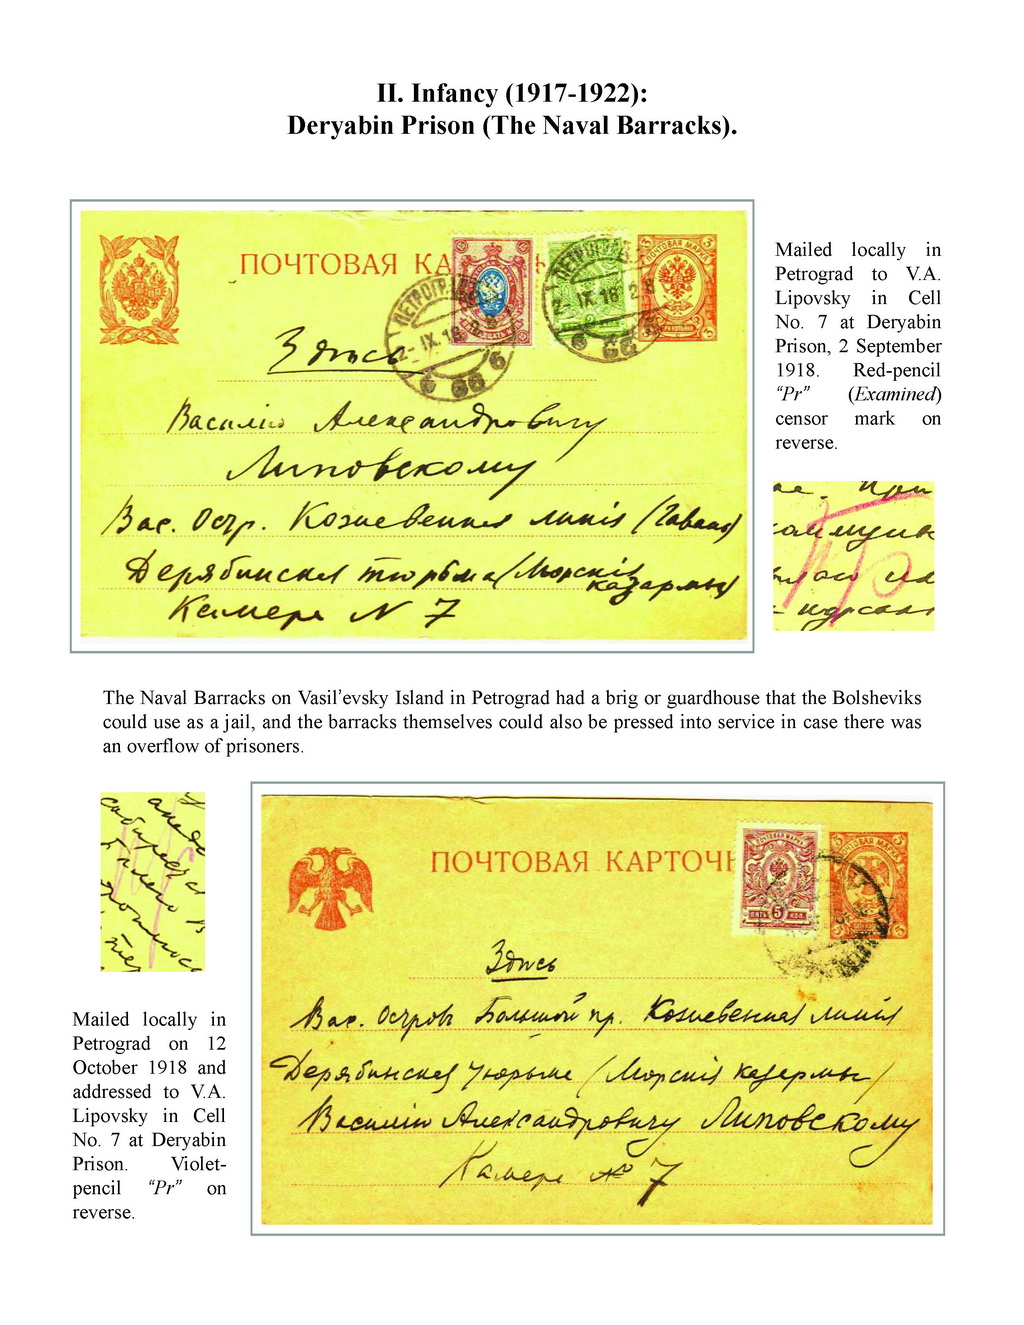 II. Infancy (1917-1922):
Deryabin Prison (The Naval Barracks).
ПОЧТОВАЯ КА
ПЕТРОГРАД
2-IX.18
6 66 б
ПЕТРОГРАД
2-IX.18
ПОЧТОВАЯ МАРКА
3
Здѣсь
Василію Александровичу
Липовскому
Вас. Остр. Кожевенная линія (Гавань)
Дерябинская тюрьма (Морскія
казармы)
Камера N 7
Mailed locally in
Petrograd to V.A.
Lipovsky in Cell
No. 7 at Deryabin
Prison, 2 September
1918. Red-pencil
“Pr” (Examined)
censor mark on
reverse.
Пр
The Naval Barracks on Vasil’evsky Island in Petrograd had a brig or guardhouse that the Bolsheviks
could use as a jail, and the barracks themselves could also be pressed into service in case there was
an overflow of prisoners.
Mailed locally in
Petrograd on 12
October 1918 and
addressed to V.A.
Lipovsky in Cell
No. 7 at Deryabin
Prison. Violet-
pencil “Pr” on
reverse.
ПОЧТОВАЯ КАРТОЧК
ПОЧТОВАЯ МАРКА
ПЯТЬ 5 КОП.
ПОЧТОВАЯ МАРКА
3
Здѣсь
Вас. Островъ Большой пр. Кожевенная линія
Дерябинская Тюрьма (Морскія казармы)
Василію Александровичу Липовскому
Камера № 7